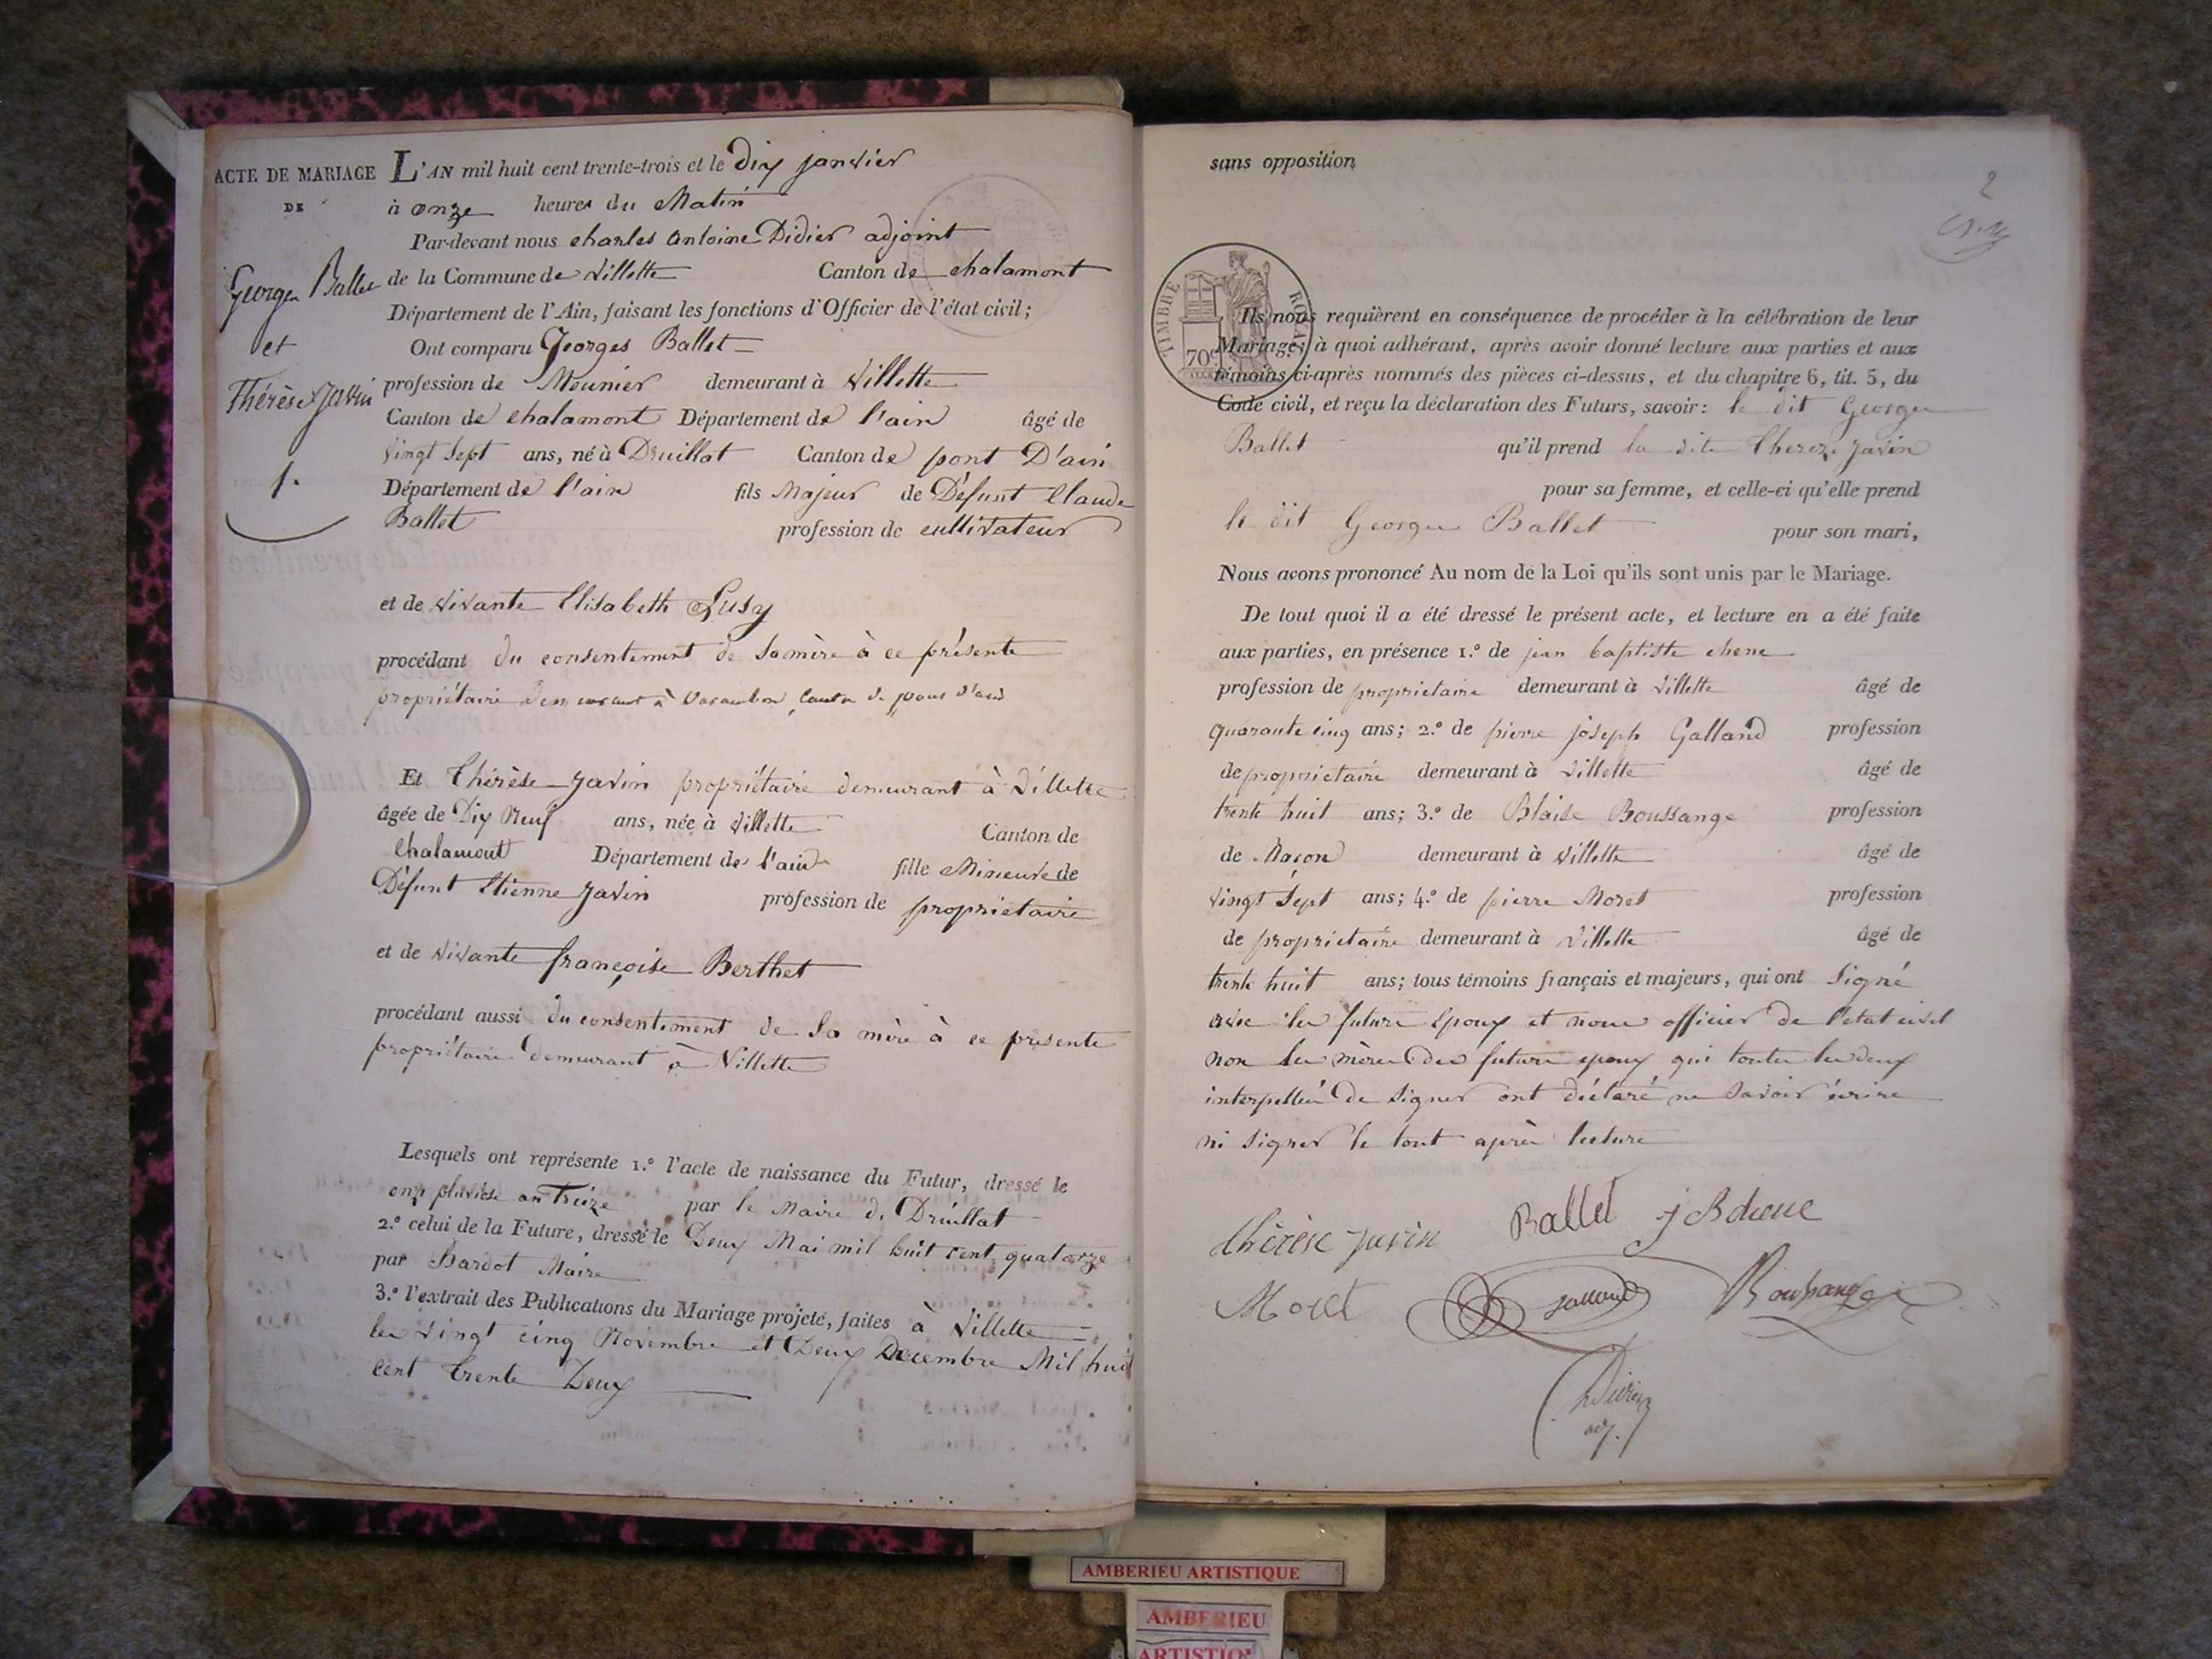 ACTE DE MARIAGE
DE
Georges Ballet
et
Thérèse Javin
1.
L'AN mil huit cent trente-trois et le dix janvier
à onze heures du Matin
Par-devant nous charles antoine Didier adjoint
de la Commune de Villette Canton de chalamont
Département de l'Ain, faisant les fonctions d'Officier de l'état civil;
Ont comparu Georges Ballet
profession de Meunier demeurant à Villette
Canton de chalamont Département de l'ain âgé de
vingt sept ans, né à Druillat Canton de pont D'ain
Département de l'ain fils Majeur de Défunt Claude
Ballet profession de cultivateur
et de vivante Elisabeth Lusy
procédant du consentement de sa mère à ce présente
propriétaire demeurant à Varambon, canton de pont d'ain
Et Thérèse Javin propriétaire demeurant à Villette
âgée de Dix Neuf ans, née à Villette Canton de
Chalamont Département de l'ain fille Mineure de
Défunt Etienne Javin profession de propriétaire
et de vivante françoise Berthet
procédant aussi du consentement de sa mère à ce présente
propriétaire demeurant à Villette
Lesquels ont représenté 1.º l'acte de naissance du Futur, dressé le
onze pluviose an Treize par le Maire de Druillat
2.º celui de la Future, dressé le Deux Mai mil huit cent quatorze
par Bardot Maire
3.º l'extrait des Publications du Mariage projeté, faites à Villette
les vingt cinq Novembre et Deux Decembre Mil huit
cent trente Deux
sans opposition
2
TIMBRE ROYAL
70c
Ils nous requièrent en conséquence de procéder à la célébration de leur
Mariage; à quoi adhérant, après avoir donné lecture aux parties et aux
témoins ci-après nommés des pièces ci-dessus, et du chapitre 6, tit. 5, du
Code civil, et reçu la déclaration des Futurs, savoir: le dit Georges
Ballet qu'il prend la dite Thereze Javin
pour sa femme, et celle-ci qu'elle prend
le dit Georges Ballet pour son mari,
Nous avons prononcé Au nom de la Loi qu'ils sont unis par le Mariage.
De tout quoi il a été dressé le présent acte, et lecture en a été faite
aux parties, en présence 1.º de jean baptiste chene
profession de proprietaire demeurant à Villette âgé de
quarante cinq ans; 2.º de pierre joseph Galland profession
de proprietaire demeurant à Villette âgé de
trente huit ans; 3.º de Blaise Boussange profession
de Maçon demeurant à Villette âgé de
vingt sept ans; 4.º de pierre Moret profession
de propriétaire demeurant à Villette âgé de
trente huit ans; tous témoins français et majeurs, qui ont signé
avec les futurs Epoux et nous officier de l'etat civil
non les mères des futurs epoux qui toutes les deux
interpellés de signer ont déclaré ne savoir écrire
ni signer le tout après lecture
thérèse javin Ballet j B chene
Moret Galland Boussange
Didier
adj.
AMBERIEU ARTISTIQUE
AMBERIEU
ARTISTIQ